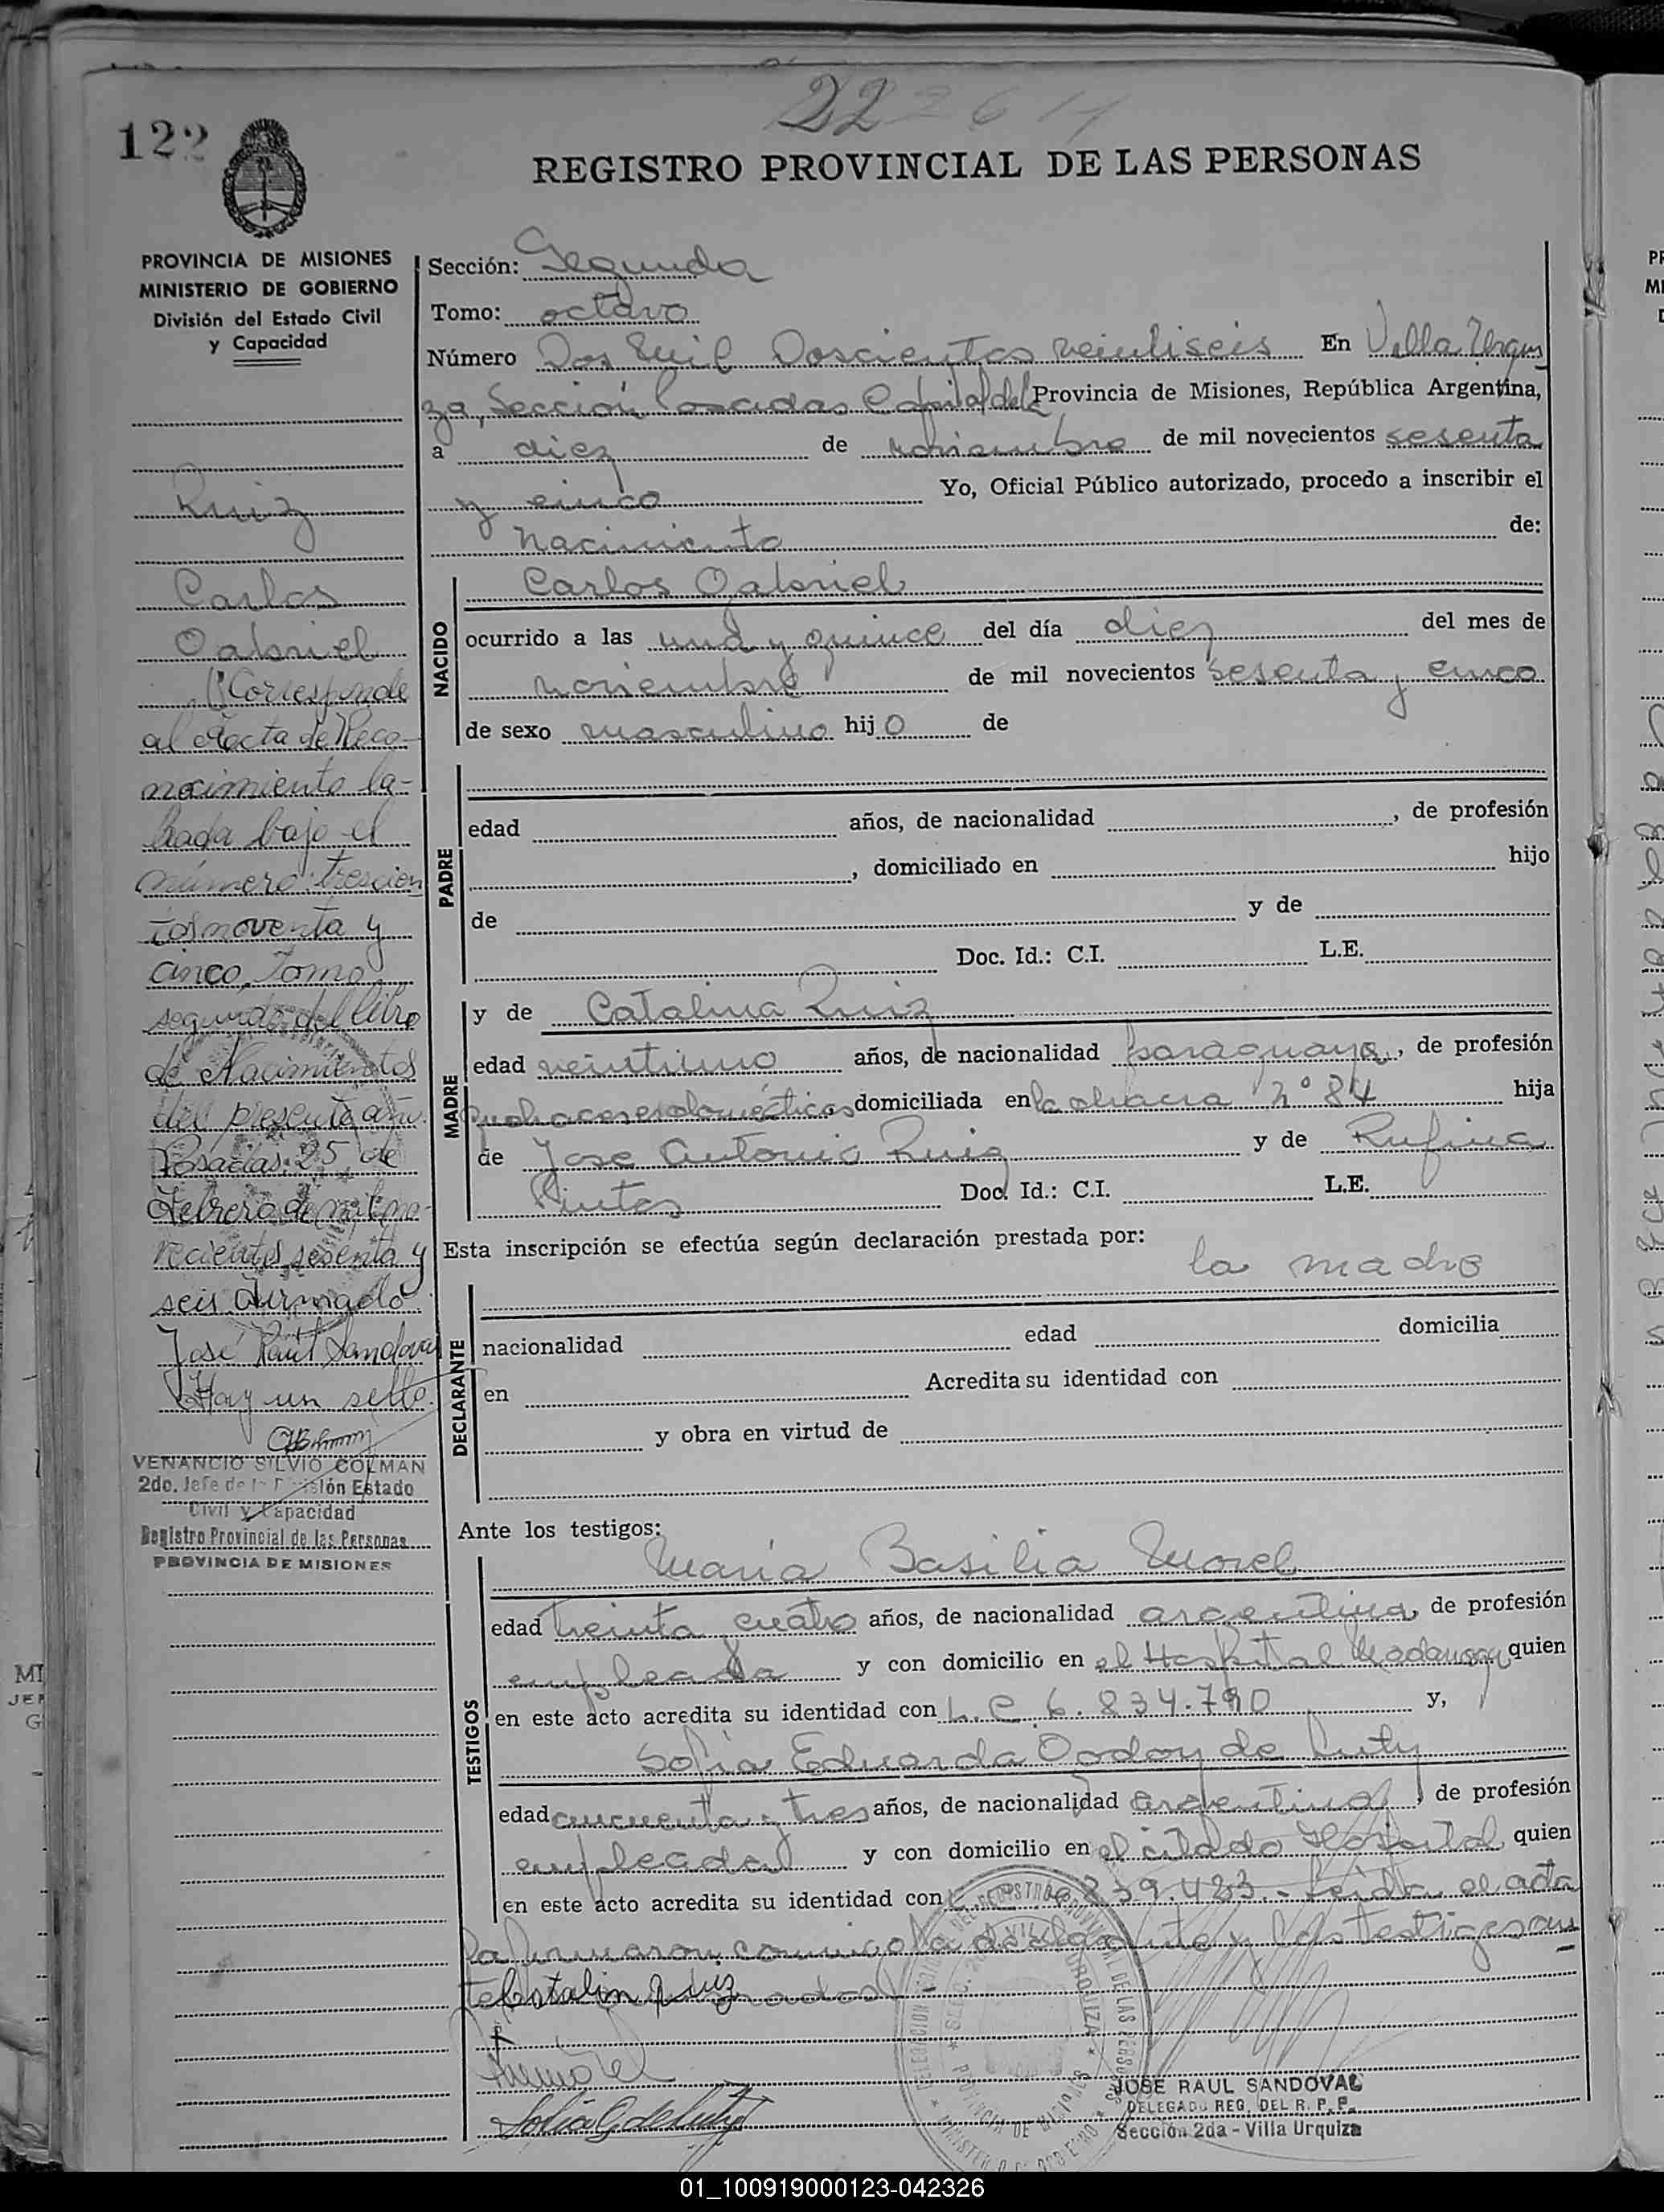 122
222611
REGISTRO PROVINCIAL DE LAS PERSONAS
PROVINCIA DE MISIONES
MINISTERIO DE GOBIERNO
División del Estado Civil
y Capacidad
Ruiz
Carlos
Gabriel
Corresponde
al Acta de Reco-
nocimiento la-
brada bajo el
número: trescien
tos noventa y
cinco, Tomo
segundo del libro
de Nacimientos
del presente año.
Posadas: 25 de
Febrero de mil no-
vecientos sesenta y
seis Firmado
José Raul Sandoval
Hay un sello.
VENANCIO SILVIO COLMAN
2do. Jefe de la División Estado
Civil y Capacidad
Registro Provincial de las Personas
PROVINCIA DE MISIONES
Sección: Segunda
Tomo: octavo
Número Dos Mil Doscientos veintiseis En Villa Urqui
za, Sección Posadas Capital de la Provincia de Misiones, República Argentina,
a diez de noviembre de mil novecientos sesenta
y cinco Yo, Oficial Público autorizado, procedo a inscribir el
nacimiento de:
NACIDO
Carlos Gabriel
ocurrido a las una y quince del día diez del mes de
noviembre de mil novecientos sesenta y cinco
de sexo masculino hijo de
PADRE
edad años, de nacionalidad , de profesión
, domiciliado en hijo
de y de
Doc. Id.: C.I. L.E.
MADRE
y de Catalina Ruiz
edad veintiuno años, de nacionalidad paraguaya, de profesión
quehaceres domésticos domiciliada en la chacra nº 84 hija
de Jose Antonio Ruiz y de Rufina
Doc. Id.: C.I. L.E.
Esta inscripción se efectúa según declaración prestada por:
la madre
DECLARANTE
nacionalidad edad domicilia
en Acredita su identidad con
y obra en virtud de
Ante los testigos:
TESTIGOS
Maria Basilia Morel
edad treinta cuatro años, de nacionalidad argentina, de profesión
empleada y con domicilio en el Hospital Madariaga quien
en este acto acredita su identidad con L.C. 6.834.790 y,
Sofia Eduarda Godoy de
edad cincuenta y tres años, de nacionalidad argentina, de profesión
empleada y con domicilio en el citado Hospital quien
en este acto acredita su identidad con 6.839.483.- Leida el acta
la firmaron conmigo la declarante y los testigos an
te
Catalin Ruiz
JOSE RAUL SANDOVAL
DELEGADO REG. DEL R. P. P.
Sección 2da - Villa Urquiza
01_100919000123-042326